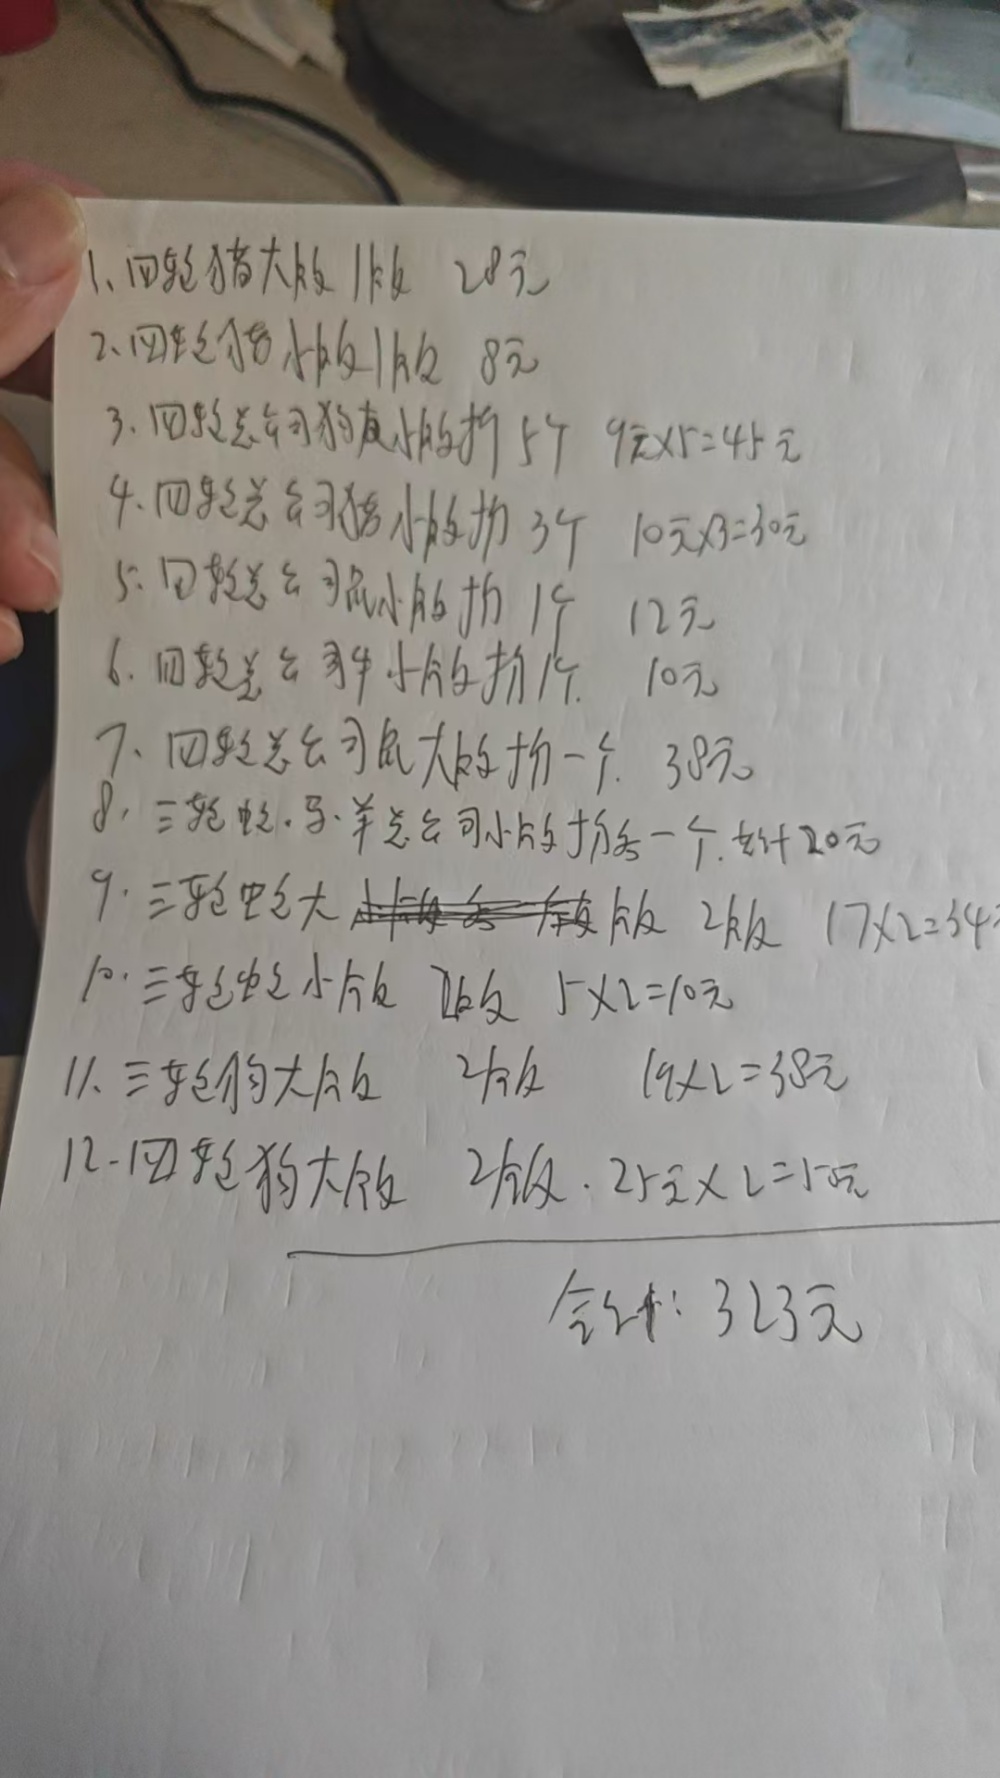 1、四轮猪大版1版 28元
2、四轮猪小版1版 8元
3、四轮总公司狗小版折5个 9元×5=45元
4、四轮总公司猪小版折3个 10元×3=30元
5、四轮总公司鼠小版折1个 12元
6、四轮总公司牛小版折1个. 10元
7、四轮总公司鼠大版折一个. 38元
8、三轮蛇.马.羊总公司小版折各一个.共计20元
9、三轮蛇大版 2版 17×2=34
10、三轮蛇小版 2版 5×2=10元
11、三轮狗大版 2版 19×2=38元
12、四轮狗大版 2版. 25元×2=50元
合计: 323元